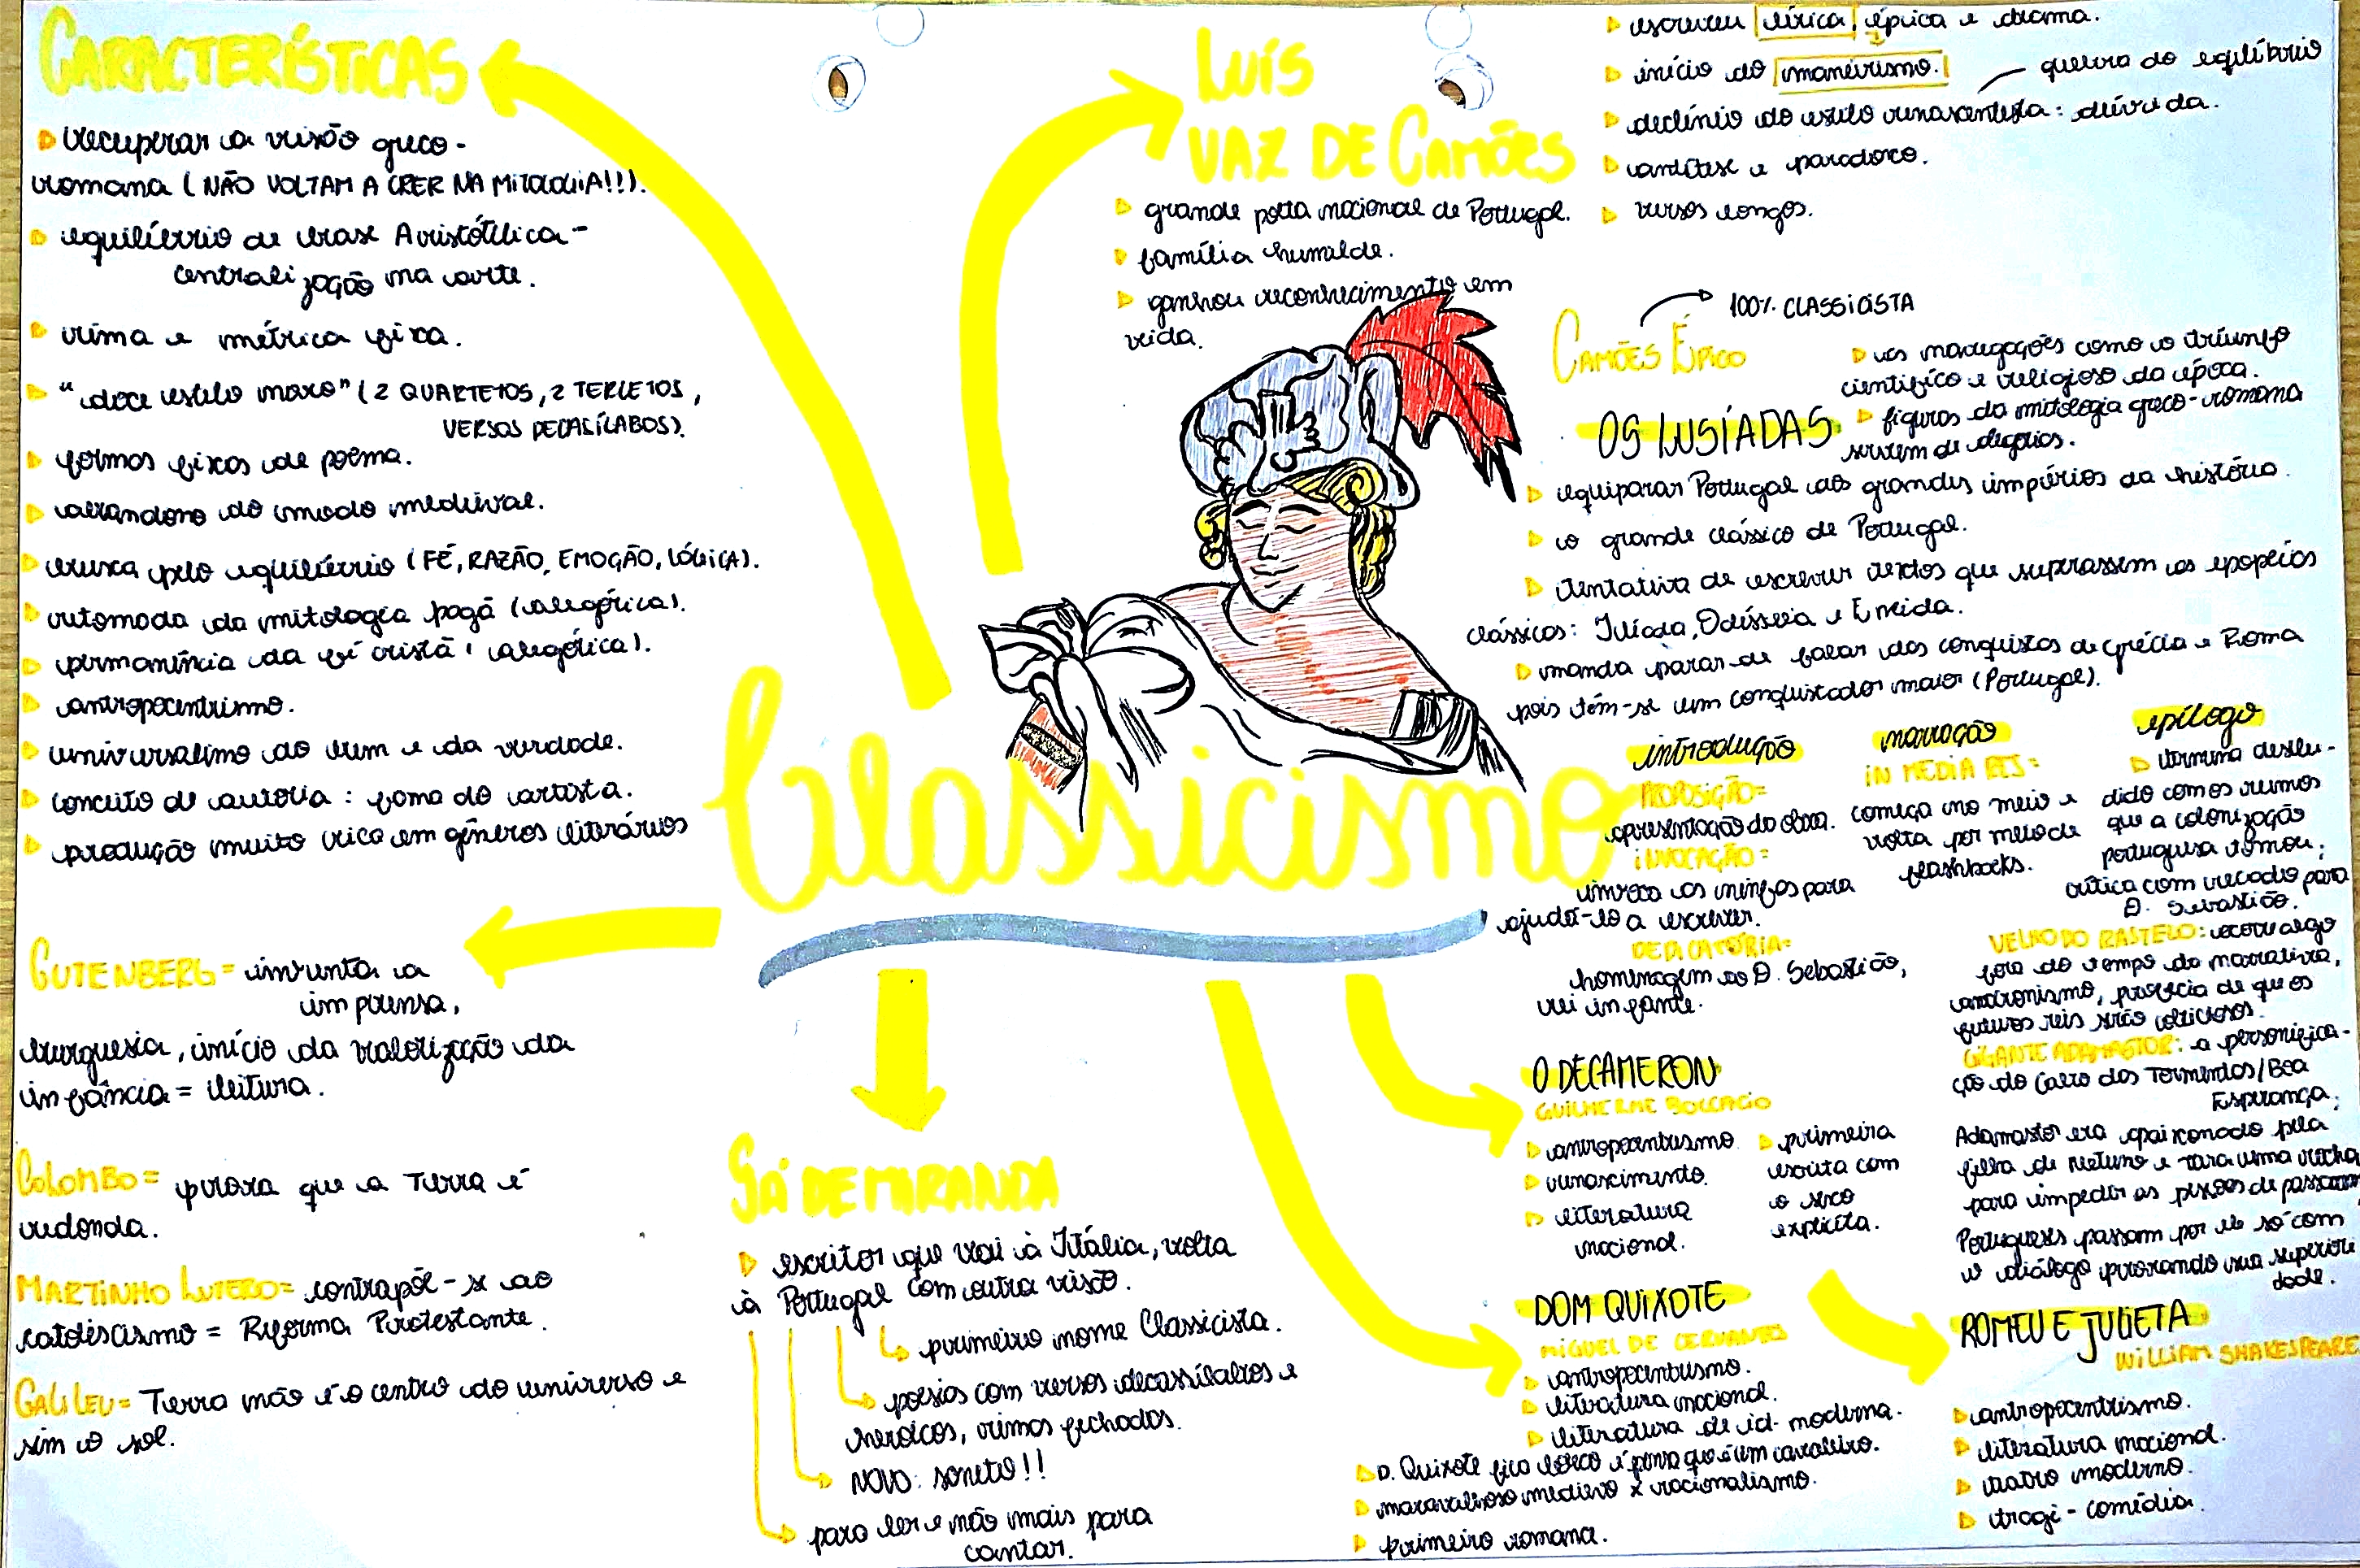 CARACTERÍSTICAS
recuperar a visão greco-
romana (NÃO VOLTAM A CRER NA MITOLOGIA!!).
equilíbrio de base Aristótelica -
centralização na arte.
rima e métrica fixa.
"doce estilo novo" (2 QUARTETOS, 2 TERCETOS,
VERSOS DECASÍLABOS).
formas fixas de poema.
abandono do modo medieval.
busca pelo equilíbrio (FÉ, RAZÃO, EMOÇÃO, LÓGICA).
retomada da mitologia pagã (alegórica).
permanência da fé cristã (alegórica).
antropocentrismo.
universalismo do bem e da verdade.
conceito de autoria: fama do artista.
produção muito rica em gêneros literários
GUTENBERG = inventa a
imprensa,
burguesia, início da valorização da
infância = leitura.
COLOMBO = prova que a Terra é
redonda.
MARTINHO LUTERO = contrapõe-se ao
catolicismo = Reforma Protestante.
GALILEU = Terra não é o centro do universo e
sim o sol.
Classicismo
LUÍS
VAZ DE CAMÕES
grande poeta nacional de Portugal.
família humilde.
ganhou reconhecimento em
vida.
escreveu lírica, épica e drama.
início do maneirismo.
quebra do equilíbrio
declínio do estilo renascentista: dúvida.
antítese e paradoxo.
versos longos.
CAMÕES ÉPICO
100% CLASSICISTA
OS LUSÍADAS
as navegações como o triunfo
científico e religioso da época.
figuras da mitologia greco-romana
servem de alegorias.
equiparar Portugal aos grandes impérios da história.
o grande clássico de Portugal.
tentativa de escrever textos que superassem as epopeias
clássicas: Ilíada, Odisséia e Eneida.
manda parar de falar das conquistas de Grécia e Roma
pois têm-se um conquistador maior (Portugal).
introdução
PROPOSIÇÃO =
apresentação da obra.
INVOCAÇÃO =
invoca as ninfas para
ajudá-lo a escrever.
DEDICATÓRIA =
homenagem ao D. Sebastião,
rei infante.
narração
IN MEDIA RES =
começa no meio e
volta por meio de
flashbacks.
epílogo
termina desilu-
dido com os rumos
que a colonização
portuguesa tomou;
crítica com recado para
D. Sebastião.
VELHO DO RASTELO: ocorre algo
fora do tempo da narrativa,
anacronismo, profecia de que os
futuros reis serão
GIGANTE ADAMASTOR: a personifica-
ção do Cabo das Tormentas/Boa
Esperança.
Adamastor era apaixonado pela
filha de Netuno e vira uma rocha
para impedir as pessoas de passarem
Portugueses passam por ele só com
o diálogo provando sua superiori
dade.
O DECAMERON
GUILHERME BOCCACIO
antropocentrismo.
renascimento.
literatura
nacional.
primeira
escrita com
o sexo
explícita.
DOM QUIXOTE
MIGUEL DE CERVANTES
antropocentrismo.
literatura nacional.
literatura de id. moderna.
D. Quixote fica louco e pensa que é um cavaleiro.
maravilhoso medievo x racionalismo.
primeiro romance.
ROMEU E JULIETA
WILLIAM SHAKESPEARE
antropocentrismo.
literatura nacional.
teatro moderno.
tragi-comédia.
SÁ DE MIRANDA
escritor que vai à Itália, volta
à Portugal com outra visão.
primeiro nome Classicista.
poesias com versos decassílabos e
heroicos, rimas fechadas.
NOVO: soneto!!
para ler e não mais para
cantar.